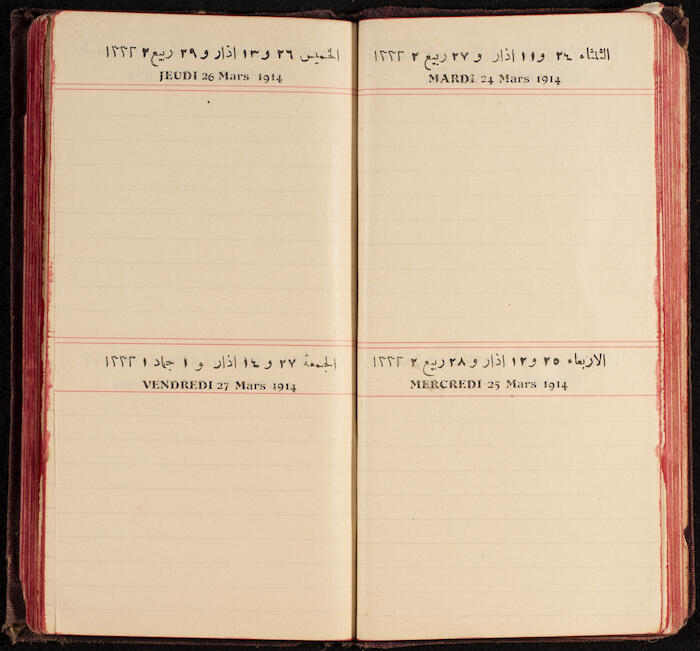 الثلثاء ٢٤ و ١١ اذار و ٢٧ ربيع ٢ ١٣٣٢
MARDI 24 Mars 1914
الاربعاء ٢٥ و ١٢ اذار و ٢٨ ربيع ٢ ١٣٣٢
MERCREDI 25 Mars 1914
الخميس ٢٦ و ١٣ اذار و ٢٩ ربيع ٢ ١٣٣٢
JEUDI 26 Mars 1914
الجمعة ٢٧ و ١٤ اذار و ١ جماد ١ ١٣٣٢
VENDREDI 27 Mars 1914